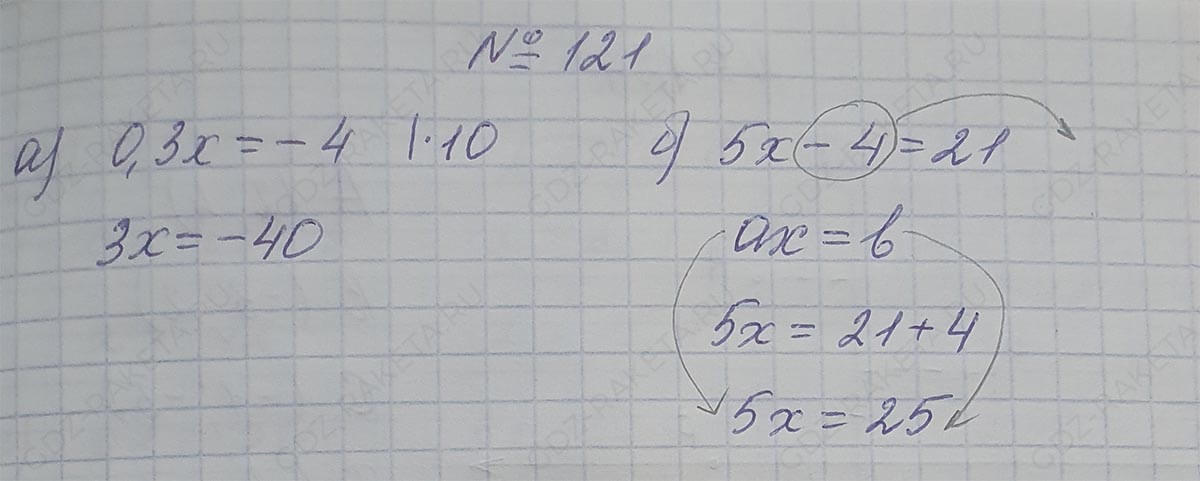 № 121
а) 0,3x = - 4 |·10
3x = - 40
б) 5x - 4 = 21
ax = b
5x = 21 + 4
5x = 25
GDZ-RAKETA.RU